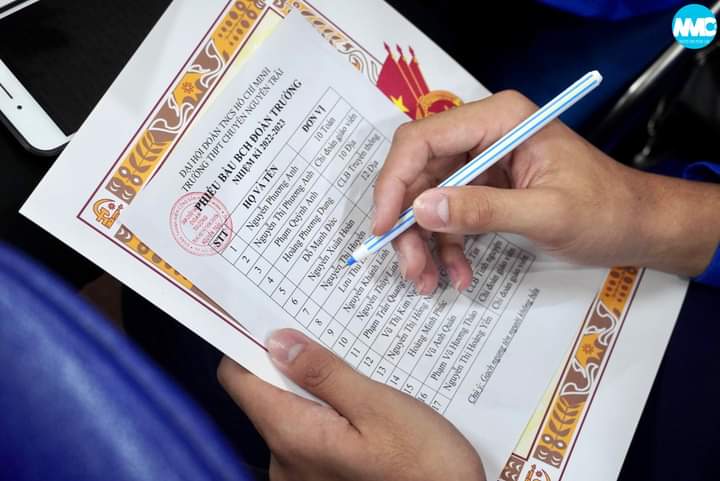 NMC
ĐẠI HỘI ĐOÀN TNCS HỒ CHÍ MINH
TRƯỜNG THPT CHUYÊN NGUYỄN TRÃI
PHIẾU BẦU BCH ĐOÀN TRƯỜNG
NHIỆM KÌ 2022-2023
STT HỌ VÀ TÊN ĐƠN VỊ
1 Nguyễn Phương Anh 10 Toán
2 Nguyễn Thị Phương Anh Chi đoàn giáo viên
3 Phạm Quỳnh Anh 10 Địa
4 Hoàng Phương Dung CLB Truyền thông
5 Đỗ Mạnh Đức 12 Địa
6 Nguyễn Xuân Hoàn
7 Nguyễn Thị Huyền
8 Lưu Thu
9 Nguyễn Khánh Linh
10 Nguyễn Thùy Linh
11 Phạm Trần Quang
12 Vũ Thị Kim
13 Nguyễn Thị Hồng
14 Hoàng Minh Phúc
15 Vũ Anh Quân CLB Tình nguyện
16 Phạm Vũ Hương Thảo Chi đoàn giáo viên
17 Nguyễn Thị Hoàng Yến Chi đoàn giáo viên
Chú ý: Gạch ngang tên người không bầu